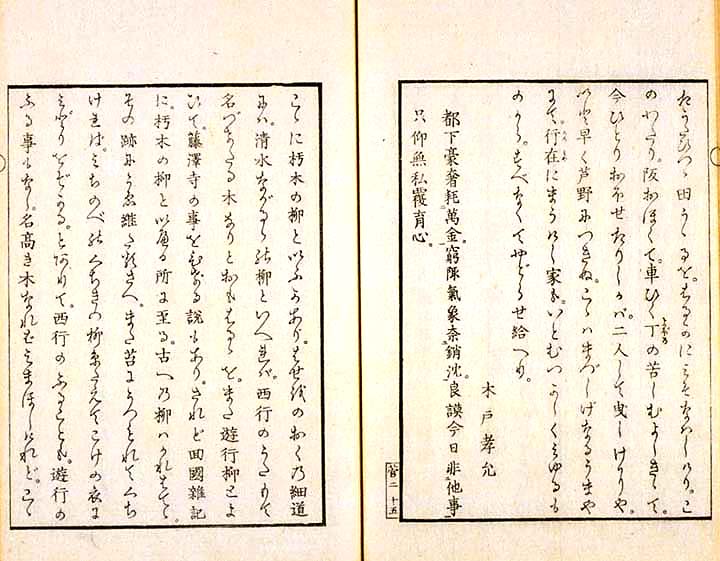 たうたひつゝ田うゝるを。みそなはしけり。こ
のわたり。阪おほくて。車ひく丁の苦しむよしきゝて。
今ひとりおほせたりしかバ。二人して曳しけりや。
いと早く芦野につきぬ。こゝハまづしげなるうまや
にて。行在にまうけし家も。いとむつかしくみゆるも
のから。すべなくてやどらせ給へり。
木戸孝允
都下豪奢耗萬金。窮陬氣象奈銷沈。良謨今日非他事
只仰無私覆育心。
二 十五
こゝに朽木の柳といふあり。はせをのおくの細道
にハ。清水ながるゝの柳といへれバ。西行のうたもて
名づけたる木なりとおもはるゝを。また遊行柳とよ
ひて。藤澤寺の事をむすべる説もあり。されど回國雜記
に。朽木の柳といへる所に至る。古への柳ハかれはてゝ。
その跡にうゑ繼たるさへ。また苔にうづもれてくち
けれは。みちのべのくちきの柳糸たえてこけの衣に
みどりをぞかる。とありて。西行のふることも。遊行の
ふる事もなし。名高き木なれはみまほしけれど。こゝ